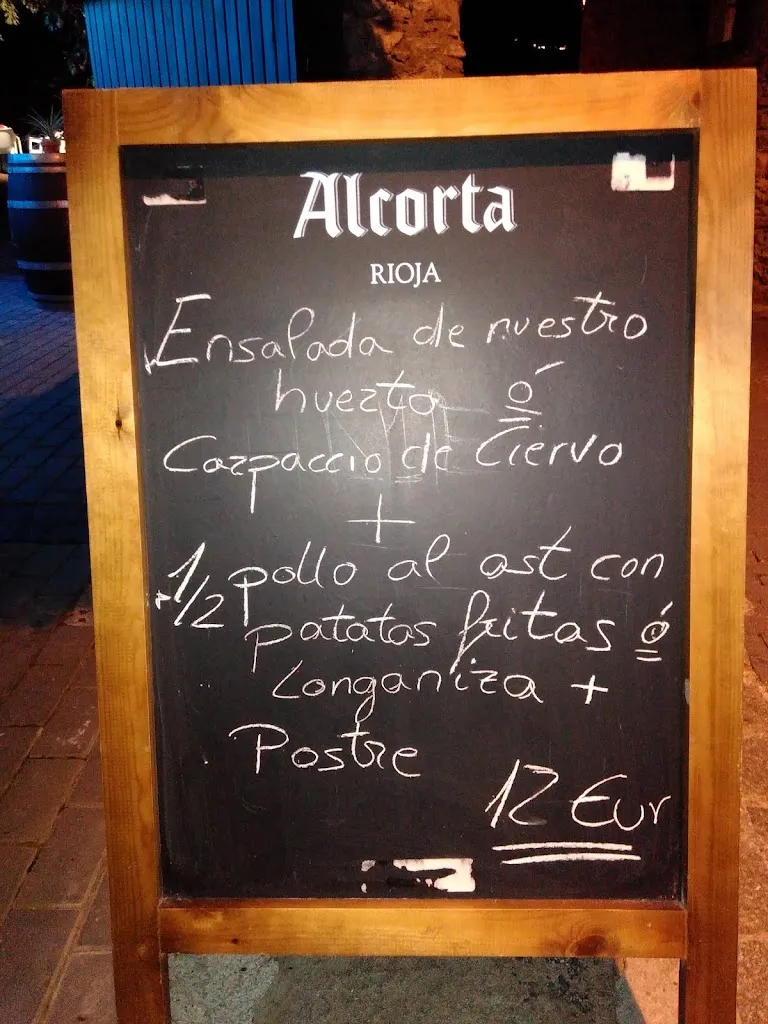 Alcorta
RIOJA
Ensalada de nuestro
huerto ó
Carpaccio de Ciervo
+
1/2 pollo al ast con
patatas fritas ó
Longaniza +
Postre
12 Eur